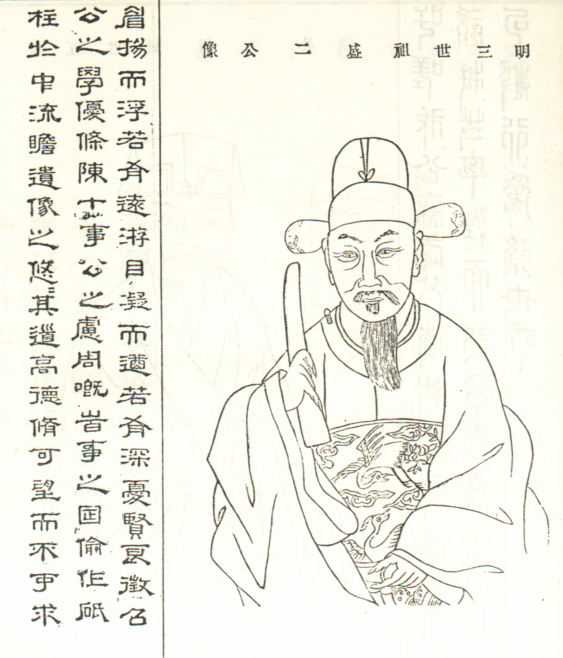 明三世祖盛二公像
眉揚而浮若有遠游目凝而遒若有深憂賢良徵召
公之學優條陳十事公之慮周嘅旹事之偷作砥
柱於中流瞻遺像之悠〻其道高德脩可望而不可求